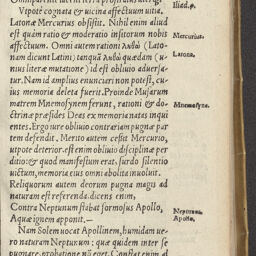 Iliad. φ.
Vtpote cognata & uicina affectuum uitia.
Latonæ Mercurius obsistit. Nihil enim aliud
est quàm ratio & moderatio insitorum nobis
affectuum. Omni autem rationi λυθὼ (Lato-
nam dicunt Latini) tanquã λυθὼ quædam (u-
nius literæ mutatione) id est obliuio aduersa-
tur. Nam id amplius enunciari non potest, cu-
ius memoria deleta fuerit. Proinde Musarum
matrem Mnemosynem ferunt, rationi & do-
ctrinæ præsides Deas ex memoria natas inqui
entes. Ergo iure obliuio contrariam pugnæ par
tem defendit. Merito autem cessit Mercurio,
utpote deterior. est enim obliuio disciplinæ per
ditio: & quod manifestum erat, surdo silentio
uictum, memoria eius omnis abolita inuoluit.
Reliquorum autem deorum pugna magis ad
naturam est referenda. dicens enim,
Contra Neptunum stabat formosus Apollo,
Aquæ ignem apponit.—
Nam Solem uocat Apollinem, humidam ue-
ro naturam Neptunum: quæ quidem inter se
pugnare, probatione nõ eget. Constat enim al
Mercurius.
Latona.
Mnemosyne.
Neptunus.
Apollo.